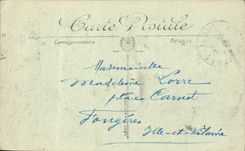 Carte Postale
Correspondance
Adresse
Mademoiselle
Madeleine Lorre
place Carnot
Fougères
Ille-et-Vilaine